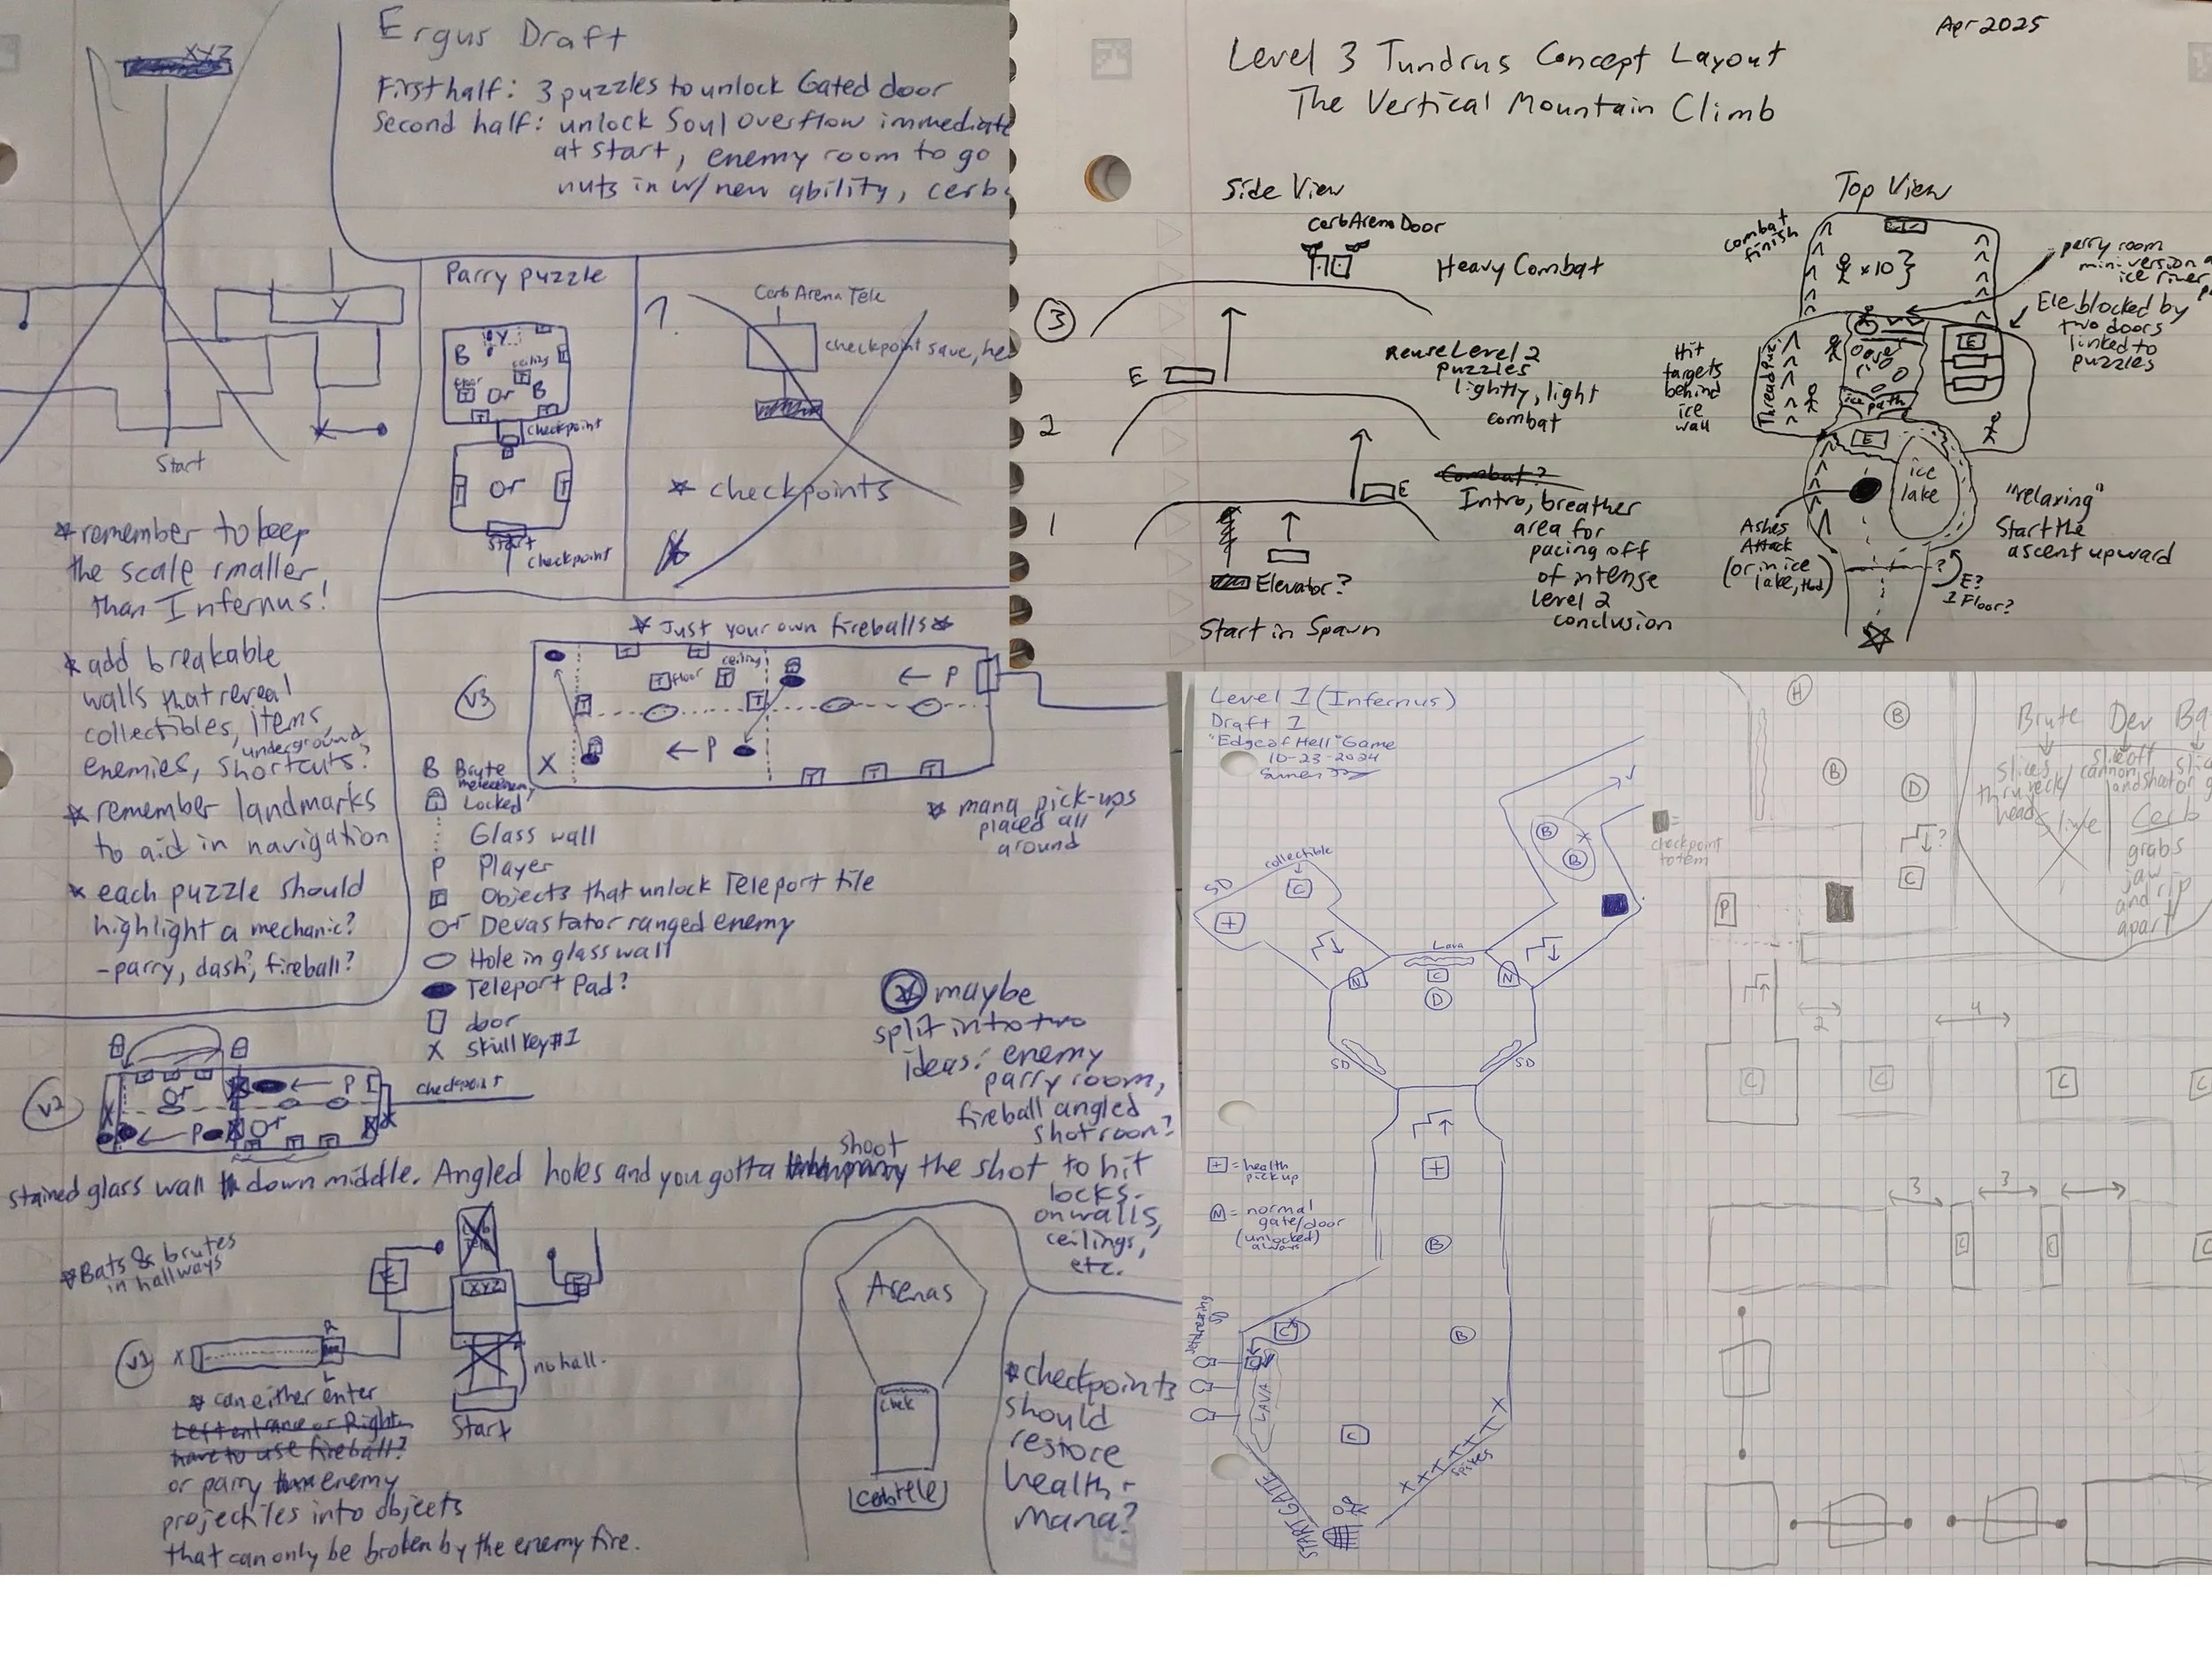 Ergus Draft
First half: 3 puzzles to unlock Gated door
Second half: unlock Soul Overflow immediate
at start, enemy room to go
nuts in w/ new ability, cerb
XYZ
Y
Start
Parry puzzle
B
Y
ceiling
T
floor
T
B
checkpoint
T
T
Start
checkpoint
?
Cerb Arena Tele
checkpoint save, he
* checkpoints
* remember to keep
the scale smaller
than Infernus!
* add breakable
walls that reveal
collectibles, items,
underground
enemies, shortcuts?
* remember landmarks
to aid in navigation
* each puzzle should
highlight a mechanic?
- parry, dash?, fireball?
* Just your own fireballs *
V3
T floor
ceiling
T
← P
X
← P
B Brute
Locked
Glass wall
P Player
Objects that unlock Teleport tile
Devastator ranged enemy
Hole in glass wall
Teleport Pad?
door
X Skull Key #1
* mana pick-ups
placed all
around
* maybe
split into two
ideas: enemy
parry room,
fireball angled
shot room?
V2
← P
← P
checkpoint
shoot
stained glass wall down middle. Angled holes and you gotta the shot to hit
locks-
on walls,
ceilings,
etc.
* Bats & brutes
in hallways
XYZ
V1
X
R
L
no hall.
Start
* can either enter
Left entrance or Right
have to use fireball?
or parry enemy
projectiles into objects
that can only be broken by the enemy fire.
Arenas
Cerb tele
* checkpoints
should
restore
health +
mana?
Apr 2025
Level 3 Tundrus Concept Layout
The Vertical Mountain Climb
Side View
Cerb Arena Door
Heavy Combat
3
E
Reuse Level 2
puzzles
lightly, light
combat
2
E
Combat?
Intro, breather
area for
pacing off
of intense
Level 2
conclusion
1
Elevator?
Start in Spawn
Top View
combat
finish
x10
parry room
mini version
ice river
Ele blocked by
two doors
linked to
puzzles
E
Hit
targets
behind
ice
wall
ice path
E
ice
lake
"relaxing"
Start the
ascent upward
Ashes
Attack
(or in ice
lake, tbd)
?
E?
1 Floor?
Level 1 (Infernus)
Draft 1
"Edge of Hell" Game
10-23-2024
B
B
X
collectible
SD
C
+
Lava
N
C
D
N
SD
SD
+
+ = health
pick up
N = normal
gate/door
(unlocked)
always
B
B
C
C
LAVA
C
Spikes
START GATE
H
B
B
D
?
C
= checkpoint
totem
P
Brute
Dev
Ba
slices
thru neck/
head
slice off
cannon
and shoot
Cerb
grabs
jaw
and rip
apart
2
4
C
C
C
C
3
3
C
C
C